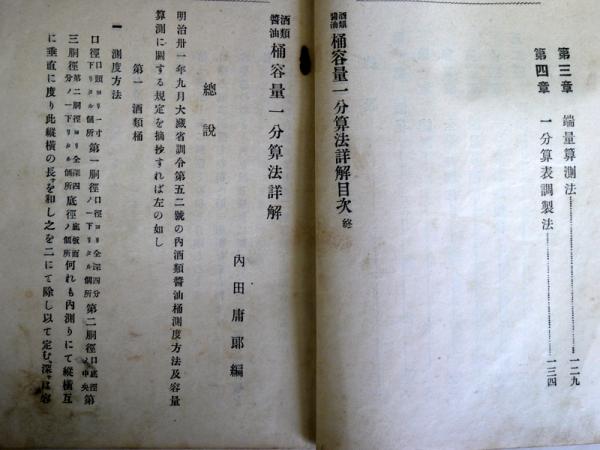 第三章 端量算測法 一二九
第四章 一分算表調製法 一三四
酒類醬油桶容量一分算法詳解目次 終
酒類醬油桶容量一分算法詳解
內田庸郞編
總說
明治卅一年九月大藏省訓令第五二號の內酒類醬油桶測度方法及容量
算測に關する規定を摘抄すれば左の如し
第一 酒類桶
一 測度方法
口徑口頭ヨリ一寸下リタル個所第一胴徑口徑ヨリ全深四分ノ一下リタル個所第二胴徑口底徑ノ中央第
三胴徑第二胴徑ヨリ全深四分ノ一下リタル個所底徑底板面ノ個所何れも內測りにて縱橫互
に垂直に度り此縱橫の長を和し之を二にて除し以て定む、深は容